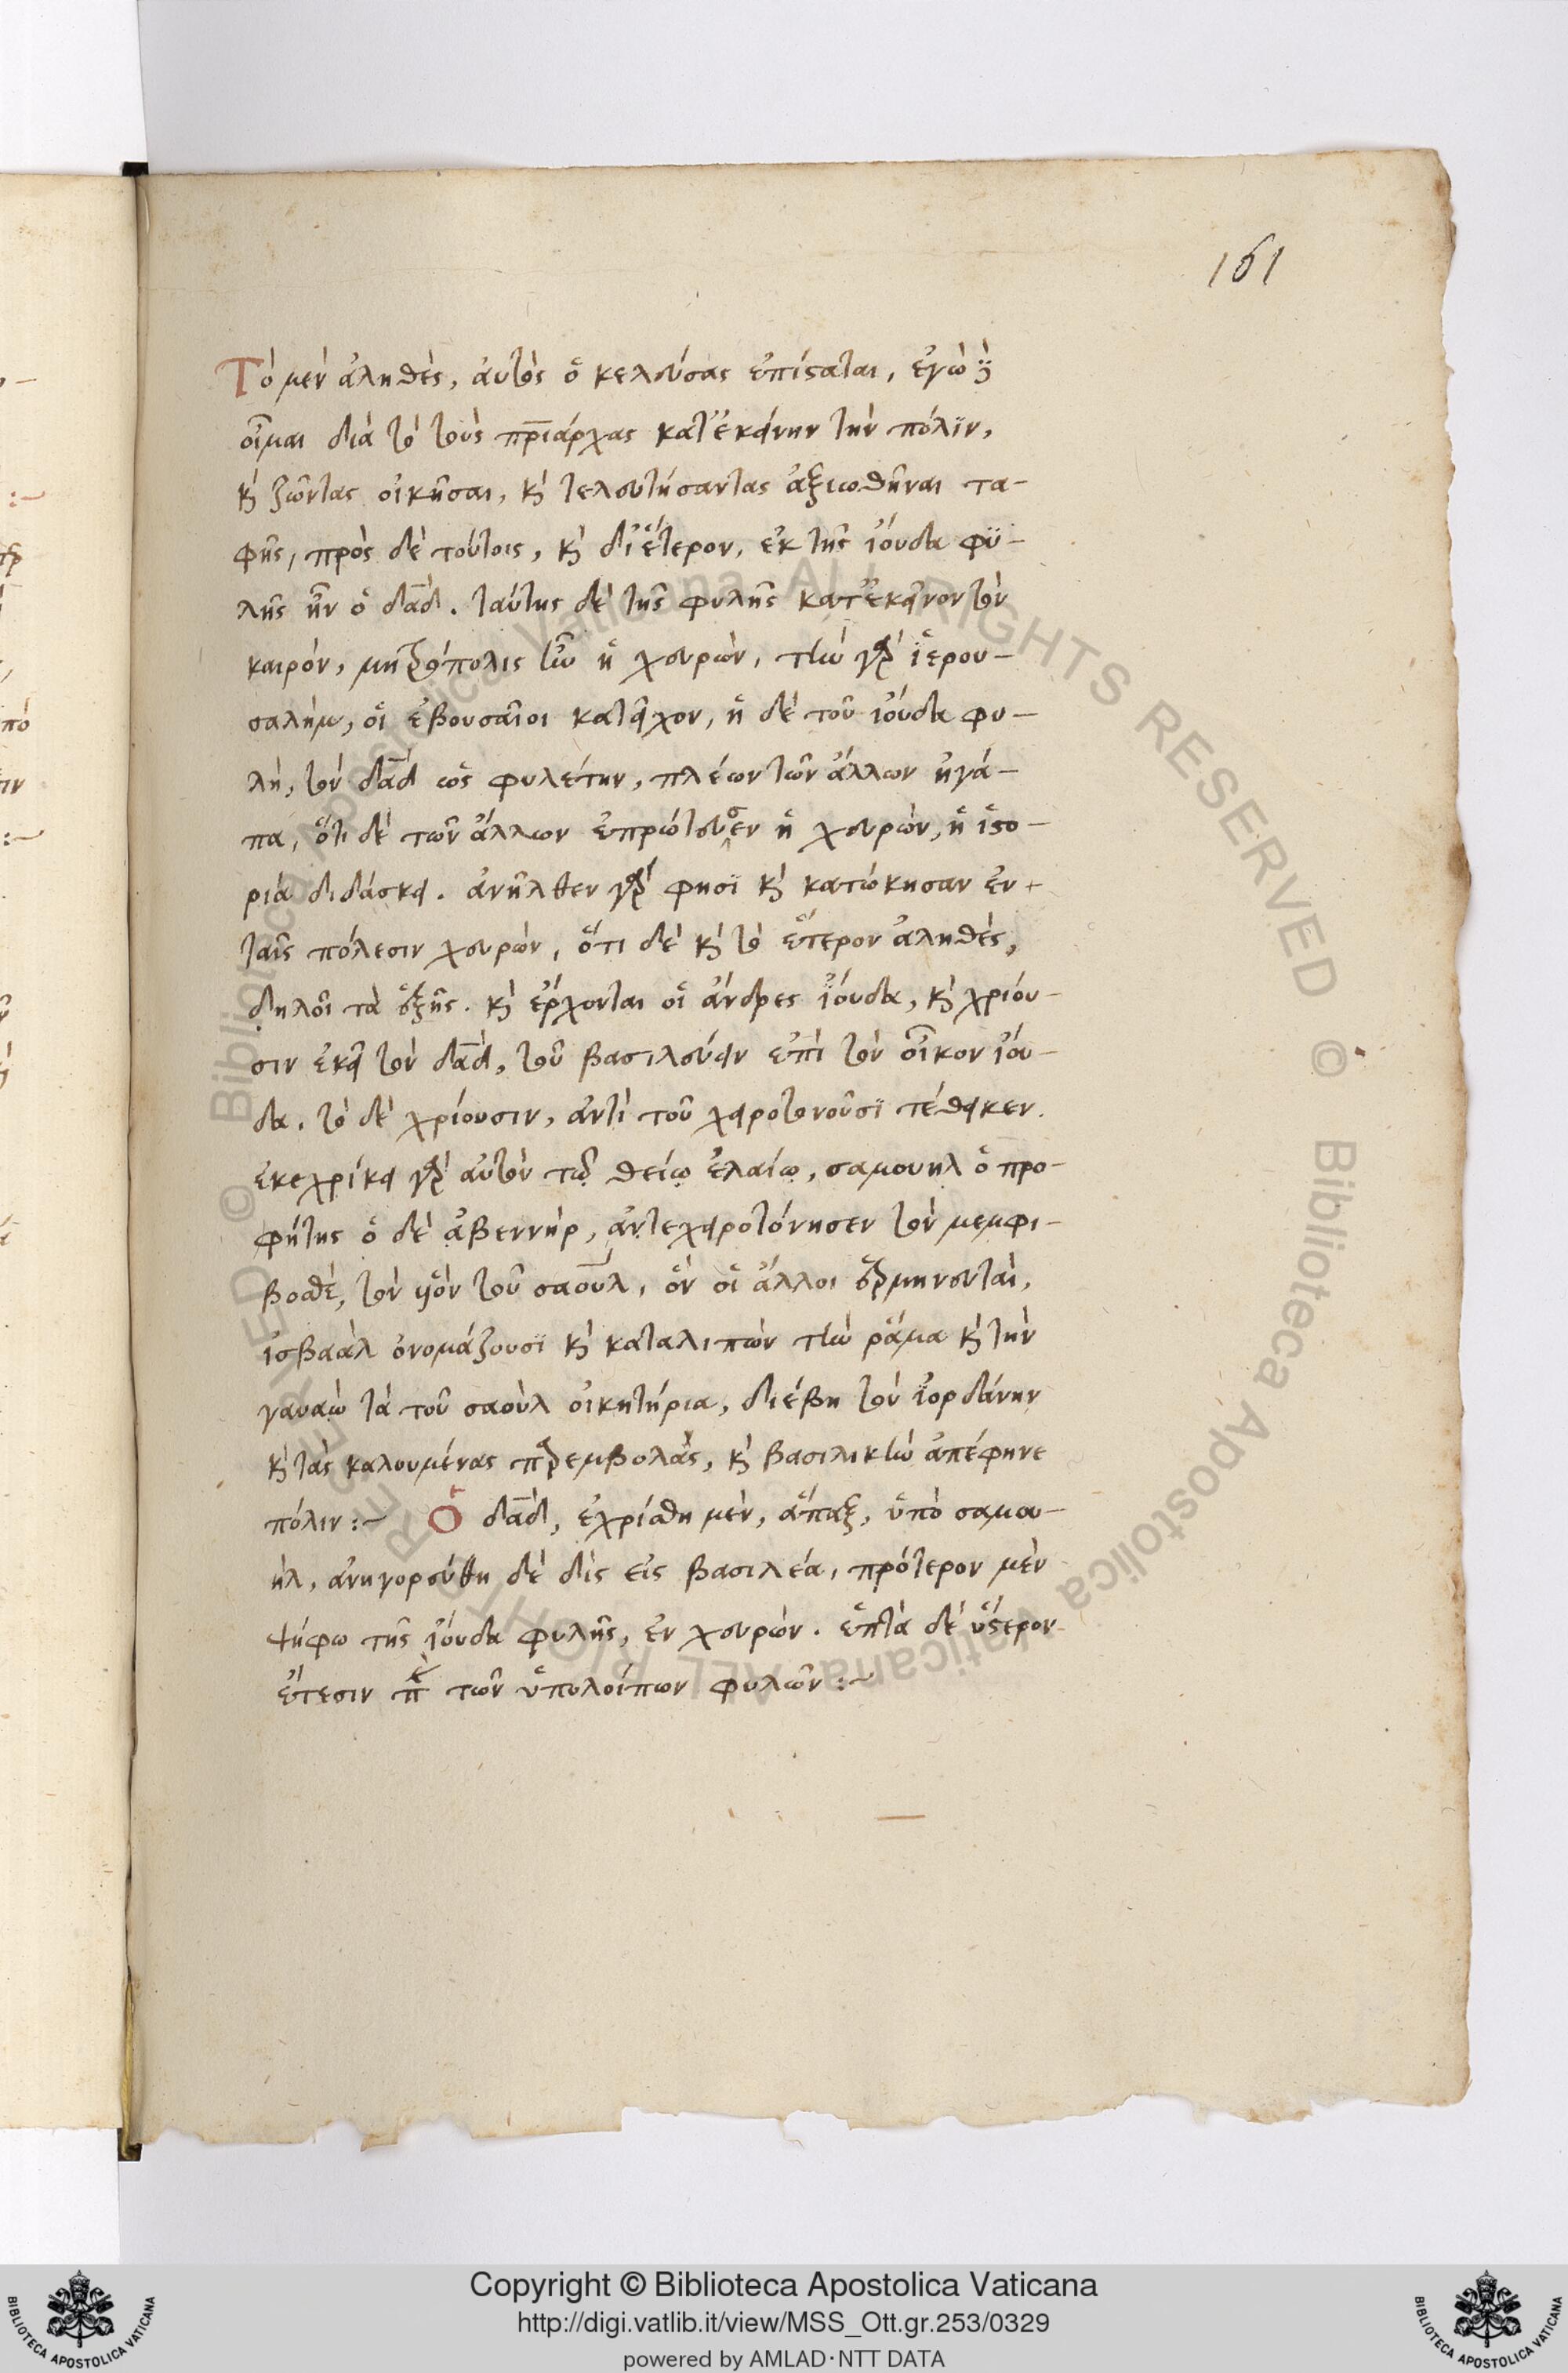 161
Τὸ μὲν ἀληθὲς, αὐτὸς ὁ κελεύσας ἐπίσταται, ἐγὼ δὲ
οἶμαι διὰ τὸ τοὺς πριάρχας κατ' ἐκείνην τὴν πόλϊν,
κὴ ζῶντας οἰκῆσαι, κὴ τελευτήσαντας ἀξιωθῆναι τα-
φῆς, πρὸς δὲ τούτοις, κὴ δι' ἕτερον, ἐκ τῆς ἰούδα φϋ-
λῆς ἦν ὁ δαδ. ταύτης δὲ τῆς φυλῆς κατ' ἐκεῖνον τὸν
καιρὸν, μητρόπολις ἦν ἡ χευρὼν, τὴν γὰρ ἱερου-
σαλὴμ, οἱ ἐβουσαῖοι κατεῖχον, ἡ δὲ τοῦ ἰούδα φυ-
λὴ, τὸν δαδ ὡς φυλέτην, πλέων τῶν ἄλλων ἠγά-
πα, ὅτι δὲ τῶν ἄλλων ἐπρώτευσεν ἡ χευρὼν, ἡ ἱστο-
ρία διδάσκει. ἀνῆλθεν γὰρ φησϊ κὴ κατώκησαν ἐν
ταῖς πόλεσιν χευρὼν, ὅτι δὲ κὴ τὸ ἕτερον ἀληθὲς,
δηλοῖ τὰ ἑξῆς. κὴ ἔρχονται οἱ ἄνδρες ἰούδα, κὴ χρίου-
σιν ἐκεῖ τὸν δαδ, τοῦ βασιλεύειν ἐπὶ τὸν οἶκον ἰού-
δα. τὸ δὲ χρίουσιν, ἀντὶ τοῦ χειροτονοῦσϊ τέθεικεν.
ἐκεχρίκει γὰρ αὐτὸν τῷ θείῳ ἐλαίῳ, σαμουηλ ὁ προ-
φήτης ὁ δὲ ἀβεννὴρ, ἀντεχειροτόνησεν τὸν μεμφι-
βοσθὲ, τὸν υἱὸν τοῦ σαοὺλ, ὃν οἱ ἄλλοι ἑρμηνευταὶ,
ἰσβαὰλ ὀνομάζουσϊ κὴ καταλιπὼν τὴν ῥάμα κὴ τὴν
γαυαὼ τὰ τοῦ σαοὺλ οἰκητήρια, διέβη τὸν ἰορδάνην
κὴ τὰς καλουμένας παρεμβολὰς, κὴ βασιλικὴν ἀπέφηνε
πόλιν :~ Ὁ δαδ, ἐχρίσθη μὲν, ἅπαξ, ὑπὸ σαμου-
ὴλ, ἀνηγορεύθη δὲ δὶς εἰς βασιλέα, πρότερον μὲν
ψήφω τῆς ἰούδα φυλῆς, ἐν χευρὼν. ἑπτὰ δὲ ὕστερον
ἔτεσιν τῶν ὑπολοίπων φυλῶν :~
Copyright © Biblioteca Apostolica Vaticana
http://digi.vatlib.it/view/MSS_Ott.gr.253/0329
powered by AMLAD·NTT DATA